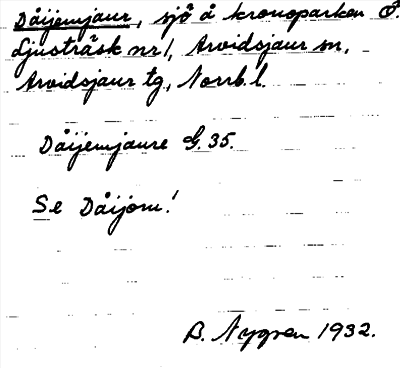 Dåijemjaur, sjö å kronoparken Ö.
Ljusträsk nr 1, Arvidsjaur sn,
Arvidsjaur tg, Norrb. l.
Dåijemjaure G. 35.
Se Dåijom!
B. Nygren 1932.